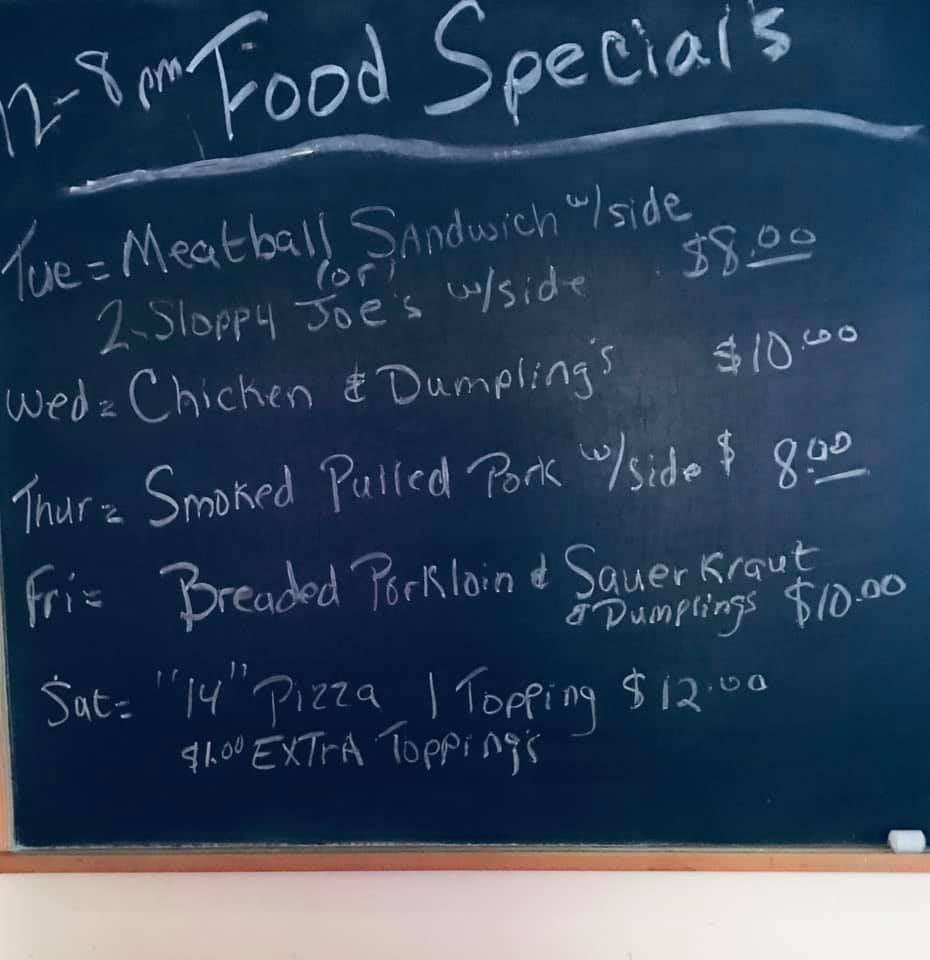 12-8 pm Food Special's
Tue = Meatball Sandwich w/side
(or) $8.00
2-Sloppy Joe's w/side
Wed = Chicken & Dumpling's $10.00
Thur = Smoked Pulled Pork w/side $ 8.00
Fri = Breaded Porkloin & Sauer Kraut
& Dumplings $10.00
Sat = "14" Pizza 1 Topping $12.00
$1.00 EXTrA Topping's